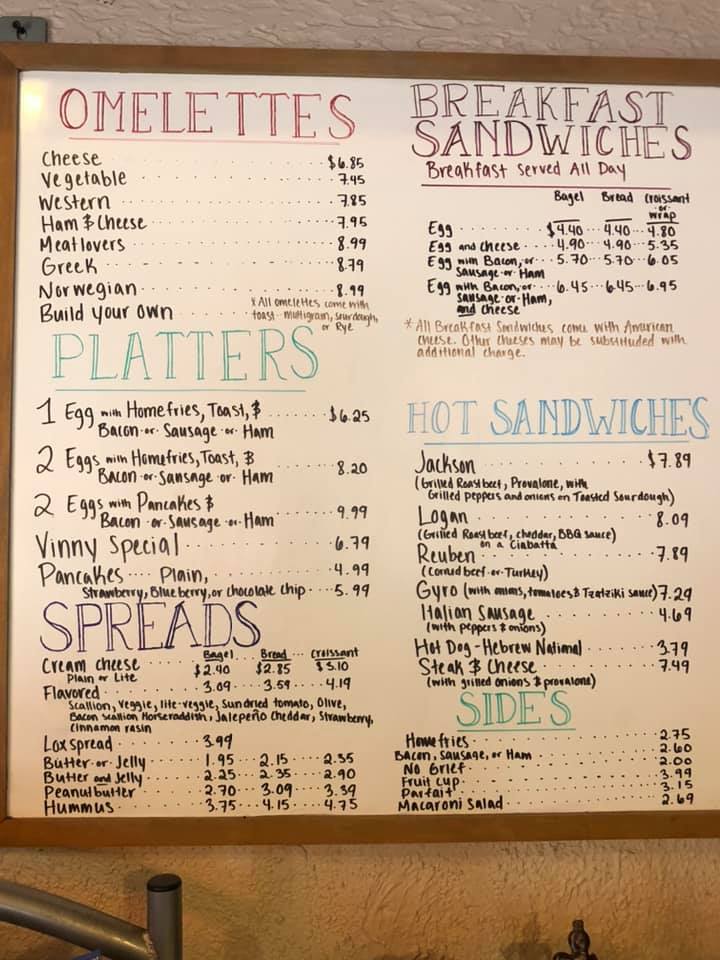 OMELETTES
Cheese $6.85
Vegetable 7.45
Western 7.85
Ham & Cheese 7.95
Meatlovers 8.99
Greek 8.79
Norwegian 8.99
Build your own
*All omelettes come with
toast - multigrain, sourdough,
or Rye
PLATTERS
1 Egg with Homefries, Toast, & $6.25
Bacon or Sausage or Ham
2 Eggs with Homefries, Toast, & 8.20
Bacon or Sausage or Ham
2 Eggs with Pancakes & 9.99
Bacon or Sausage or Ham
Vinny Special 6.79
Pancakes Plain, 4.99
Strawberry, Blueberry, or chocolate chip 5.99
SPREADS
Bagel Bread Croissant
Cream cheese $2.40 $2.85 $3.10
Plain or Lite
Flavored 3.09 3.59 4.19
Scallion, Veggie, lite-veggie, Sundried tomato, Olive,
Bacon scallion Horseraddish, Jalepeño Cheddar, Strawberry,
Cinnamon rasin
Lox spread 3.99
Butter or Jelly 1.95 2.15 2.35
Butter and Jelly 2.25 2.35 2.90
Peanutbutter 2.70 3.09 3.39
Hummus 3.75 4.15 4.75
BREAKFAST
SANDWICHES
Breakfast Served All Day
Bagel Bread Croissant
or
wrap
Egg $4.40 4.40 4.80
Egg and cheese 4.90 4.90 5.35
Egg with Bacon, or 5.70 5.70 6.05
Sausage or Ham
Egg with Bacon, or 6.45 6.45 6.95
Sausage or Ham,
and cheese
*All Breakfast Sandwiches come with American
cheese. Other cheeses may be substituted with
additional charge.
HOT SANDWICHES
Jackson $7.89
(Grilled Roastbeef, Provalone, with
Grilled peppers and onions on Toasted Sourdough)
Logan 8.09
(Grilled Roastbeef, cheddar, BBQ sauce)
on a Ciabatta
Reuben 7.89
(Corned beef or Turkey)
Gyro (with onions, tomatoes & Tzatziki sauce) 7.29
Italian Sausage 4.69
(with peppers & onions)
Hot Dog - Hebrew National 3.79
Steak & Cheese 7.49
(with grilled onions & provalone)
SIDES
Homefries 2.75
Bacon, Sausage, or Ham 2.60
No Grief 2.00
Fruit Cup 3.99
Parfait 3.15
Macaroni Salad 2.69